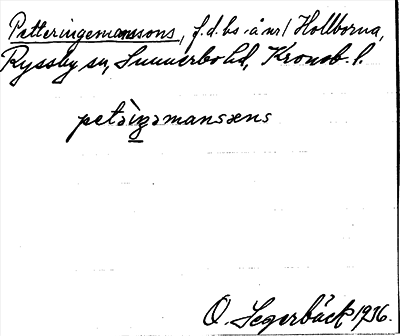 Petteringemanssons, f.d. bs å nr 1 Hollborna,
Ryssby sn, Sunnerbo hd, Kronob. l.
petəìŋəmansəns
O. Segerbäck 1936.